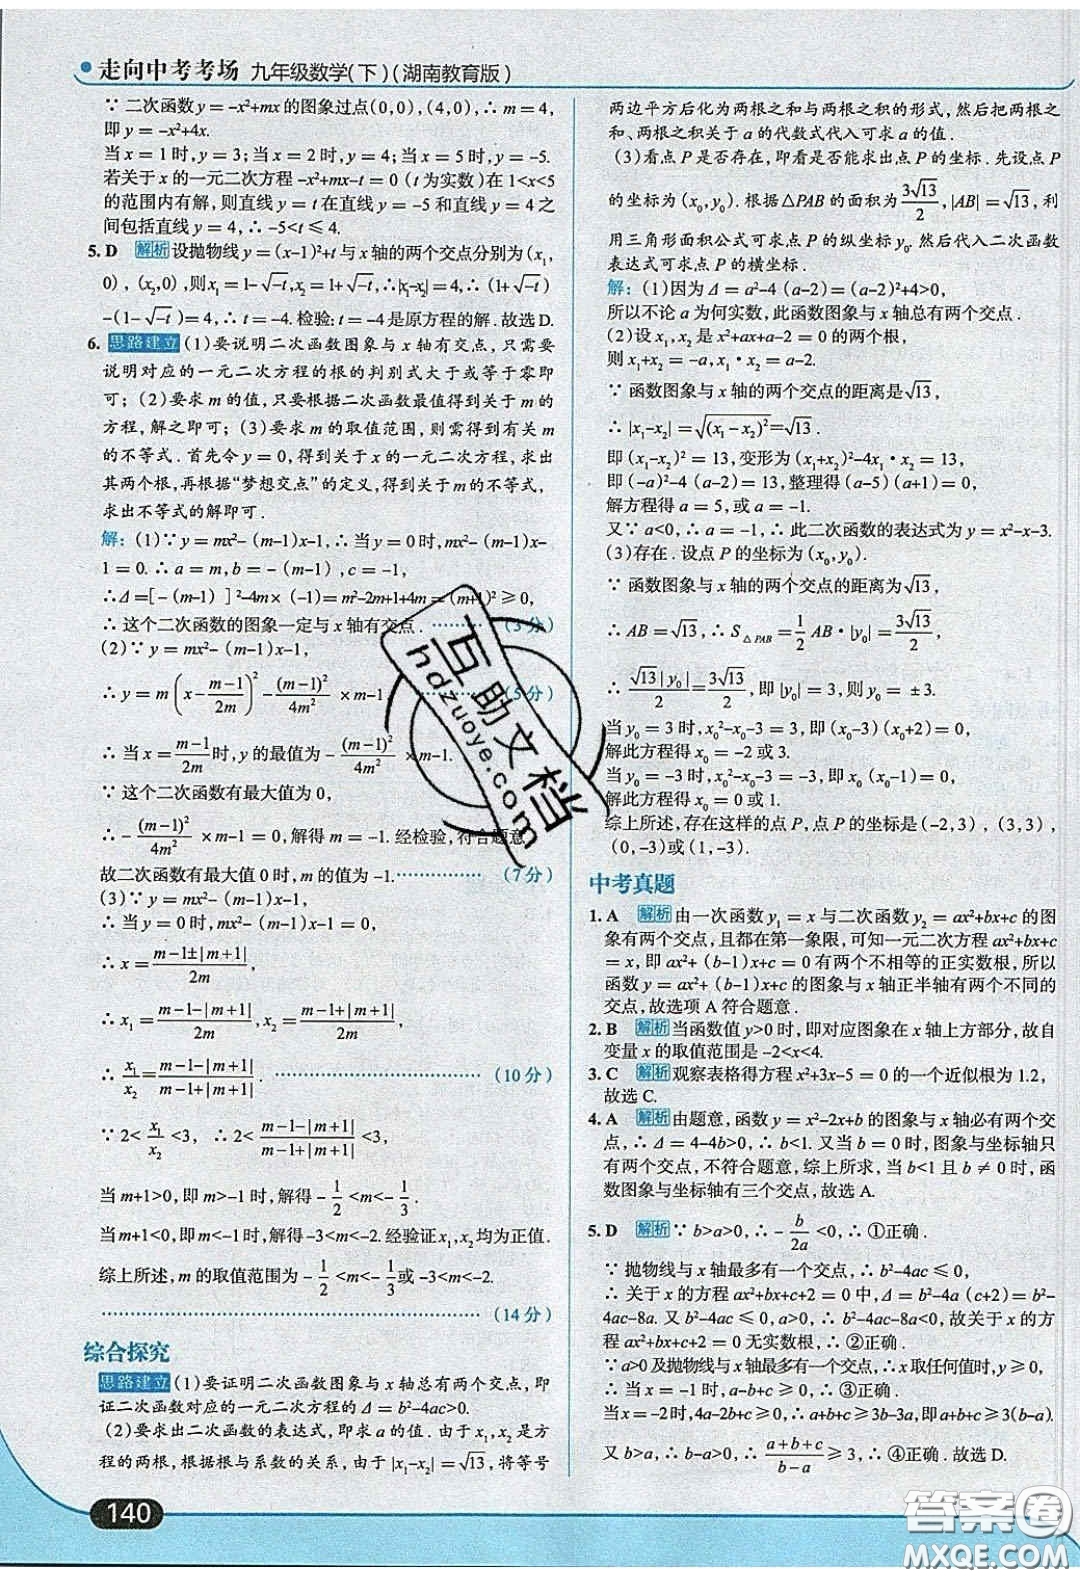 走向中考考场 九年级数学(下)(湖南教育版)
∵ 二次函数 y = -x²+mx 的图象过点(0,0),(4,0),∴ m = 4,
即 y = -x²+4x.
当 x = 1 时, y = 3; 当 x = 2 时, y = 4; 当 x = 5 时, y = -5.
若关于 x 的一元二次方程 -x²+mx-t = 0 ( t 为实数) 在 1<x<5
的范围内有解, 则直线 y = t 在直线 y = -5 和直线 y = 4 之
间包括直线 y = 4, ∴ -5<t ≤ 4.
5. D 解析 设抛物线 y = (x-1)²+t 与 x 轴的两个交点分别为(x₁,
0), (x₂,0),则 x₁ = 1-√-t, x₂= 1+√-t,∴|x₁-x₂| = 4,∴ (1+√-t)
-(1-√-t) = 4, ∴ t = -4. 检验: t = -4 是原方程的解. 故选 D.
6. 思路建立 (1)要说明二次函数图象与 x 轴有交点, 只需要
说明对应的一元二次方程的根的判别式大于或等于零即
可; (2)要求 m 的值, 只要根据二次函数最值得到关于 m 的
方程, 解之即可; (3)要求 m 的取值范围, 则需得到有关 m
的不等式. 首先令 y = 0, 得到关于 x 的一元二次方程, 求出
其两个根, 再根据“梦想交点”的定义, 得到关于 m 的不等式,
求出不等式的解即可.
解: (1)∵ y = mx²- (m-1)x-1, ∴ 当 y = 0 时, mx²- (m-1)x-
1 = 0. ∴ a = m, b = - (m-1) , c = -1,
∴Δ = [ - (m-1) ]²-4m × (-1) = m²-2m+1+4m = (m+1)² ≥ 0,
∴ 这个二次函数的图象一定与 x 轴有交点. ……… (3 分)
(2)∵ y = mx²- (m-1)x-1,
∴ y = m (x - (m-1)/2m)² - (m-1)²/4m² × m-1 (5 分)
∴ 当 x = (m-1)/2m 时, y 的最值为 - (m-1)²/4m² × m-1.
∵ 这个二次函数有最大值为 0,
∴ - (m-1)²/4m² × m-1 = 0, 解得 m = -1. 经检验, 符合题意
故二次函数有最大值 0 时, m 的值为 -1. …………… (7 分)
(3)∵ y = mx²- (m-1)x-1,
∴ 当 y = 0 时, mx²- (m-1)x-1 = 0,
∴ x = (m-1±|m+1|)/2m,
∴ x₁ = (m-1-|m+1|)/2m, x₂ = (m-1+|m+1|)/2m,
∴ x₁/x₂ = (m-1-|m+1|)/(m-1+|m+1|). ……………………………… (10 分)
∵ 2< x₁/x₂ <3, ∴ 2< (m-1-|m+1|)/(m-1+|m+1|) <3,
当 m+1>0, 即 m>-1 时, 解得 - 1/2 <m<- 1/3.
当 m+1<0, 即 m<-1 时, 解得 -3<m<-2. 经验证 x₁,x₂ 均为正值.
综上所述, m 的取值范围为 - 1/2 <m<- 1/3 或 -3<m<-2.
…………………………………………………… (14 分)
综合探究
思路建立 (1)要证明二次函数图象与 x 轴总有两个交点, 即
证二次函数对应的一元二次方程的 Δ = b²-4ac>0.
(2)要求出二次函数的表达式, 即求 a 的值. 由于 x₁,x₂ 是方
程的两根, 根据根与系数的关系, 由于 |x₁-x₂| = √13, 将等号
140
两边平方后化为两根之和与两根之积的形式, 然后把两根之
和、两根之积关于 a 的代数式代入可求 a 的值.
(3)看点 P 是否存在, 即看是否能求出点 P 的坐标. 先设点 P
的坐标为 (x₀,y₀). 根据△PAB 的面积为 3√13/2, |AB| = √13, 利
用三角形面积公式可求点 P 的纵坐标 y₀. 然后代入二次函数
表达式可求点 P 的横坐标.
解: (1)因为 Δ = a²-4 (a-2) = (a-2)²+4>0,
所以不论 a 为何实数, 此函数图象与 x 轴总有两个交点.
(2)设 x₁,x₂ 是 x²+ax+a-2 = 0 的两个根,
则 x₁+x₂ = -a, x₁·x₂ = a-2.
∵ 函数图象与 x 轴的两个交点的距离是 √13,
∴ |x₁-x₂| = √(x₁-x₂)² = √13.
即 (x₁-x₂)² = 13, 变形为 (x₁+x₂)²-4x₁·x₂ = 13,
即 (-a)²-4 (a-2) = 13, 整理得 (a-5) (a+1) = 0,
解方程得 a = 5, 或 a = -1.
又∵ a<0, ∴ a = -1, ∴ 此二次函数的表达式为 y = x²-x-3.
(3)存在. 设点 P 的坐标为 (x₀,y₀).
∵ 函数图象与 x 轴的两个交点的距离为 √13,
∴ AB = √13, ∴ S△PAB = 1/2 AB·|y₀| = 3√13/2,
∴ √13|y₀|/2 = 3√13/2, 即 |y₀| = 3, 则 y₀ = ±3.
当 y₀ = 3 时, x₀²-x₀-3 = 3, 即 (x₀-3) (x₀+2) = 0,
解此方程得 x₀ = -2 或 3.
当 y₀ = -3 时, x₀²-x₀-3 = -3, 即 x₀ (x₀-1) = 0,
解此方程得 x₀ = 0 或 1.
综上所述, 存在这样的点 P, 点 P 的坐标是 (-2,3), (3,3),
(0,-3) 或 (1,-3).
中考真题
1. A 解析 由一次函数 y₁ = x 与二次函数 y₂ = ax²+bx+c 的图
象有两个交点, 且都在第一象限, 可知一元二次方程 ax²+bx+c
= x, 即 ax²+ (b-1)x+c = 0 有两个不相等的正实数根, 所以
函数 y = ax²+ (b-1)x+c 的图象与 x 轴正半轴有两个不同的
交点, 故选项 A 符合题意.
2. B 解析 当函数值 y>0 时, 即对应图象在 x 轴上方部分, 故自
变量 x 的取值范围是 -2<x<4.
3. C 解析 观察表格得方程 x²+3x-5 = 0 的一个近似根为 1.2,
故选 C.
4. A 解析 由题意, 函数 y = x²-2x+b 的图象与 x 轴必有两个交
点, ∴ Δ = 4-4b>0, ∴ b<1. 又当 b = 0 时, 图象与坐标轴只
有两个交点, 不符合题意, 综上所求, 当 b<1 且 b ≠ 0 时, 函
数图象与坐标轴有三个交点, 故选 A.
5. D 解析 ∵ b>a>0, ∴ - b/2a <0, ∴ ①正确.
∵ 抛物线与 x 轴最多有一个交点, ∴ b²-4ac ≤ 0,
∴ 关于 x 的方程 ax²+bx+c+2 = 0 中, Δ = b²-4a (c+2) = b²-
4ac-8a. 又 b²-4ac ≤ 0, a>0, ∴ b²-4ac-8a<0, 故关于 x 的方
程 ax²+bx+c+2 = 0 无实数根, ∴ ②正确.
∵ a>0 及抛物线与 x 轴最多有一个交点, ∴ x 取任何值时, y ≥ 0,
∴ 当 x = -1 时, a-b+c ≥ 0, ∴ ③正确.
当 x = -2 时, 4a-2b+c ≥ 0, ∴ a+b+c ≥ 3b-3a, 即 a+b+c ≥ 3(b-a).
又 b>a, ∴ b-a>0, ∴ (a+b+c)/(b-a) ≥ 3, ∴ ④正确. 故选 D.
互助文档
hdzuoye.com
答案圈
MXQE.COM